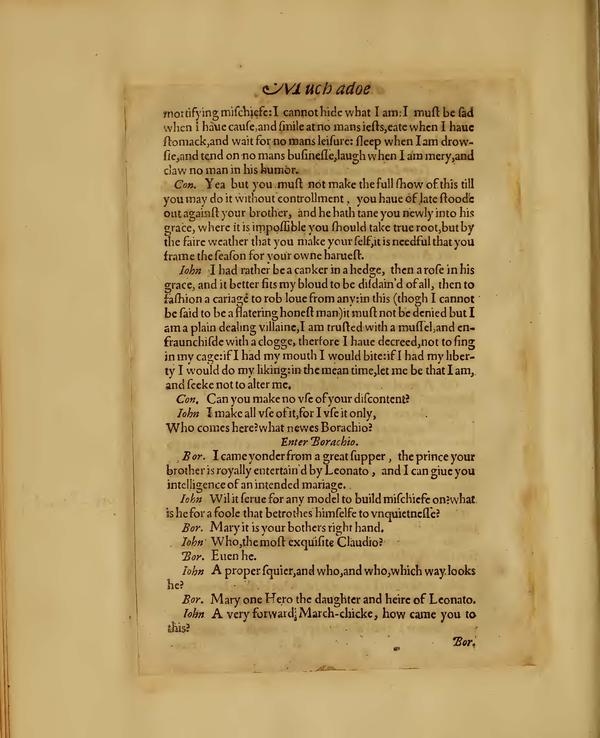 Much adoe
mortifying miſchiefe: I cannot hide what I am: I muſt be ſad
when i haue cauſe, and ſmile at no mans ieſts, eate when I haue
ſtomack, and wait for no mans leiſure: ſleep when I am drow-
ſie, and tend on no mans buſineſſe, laugh when I am mery, and
claw no man in his humor.
Con. Yea but you muſt not make the full ſhow of this till
you may do it without controllment, you haue of late ſtoode
out againſt your brother, and he hath tane you newly into his
grace, where it is impoſſible you ſhould take true root, but by
the faire weather that you make your ſelf, it is needful that you
frame the ſeaſon for your owne harueſt.
Iohn I had rather be a canker in a hedge, then a roſe in his
grace, and it better fits my bloud to be diſdain'd of all, then to
faſhion a cariage to rob loue from any: in this (thogh I cannot
be ſaid to be a flatering honeſt man) it muſt not be denied but I
am a plain dealing villaine, I am truſted with a muſſel, and en-
fraunchiſde with a clogge, therfore I haue decreed, not to ſing
in my cage: if I had my mouth I would bite: if I had my liber-
ty I would do my liking: in the mean time, let me be that I am,
and ſeeke not to alter me.
Con. Can you make no vſe of your diſcontent?
Iohn I make all vſe of it, for I vſe it only,
Who comes here? what newes Borachio?
Enter Borachio.
Bor. I came yonder from a great ſupper, the prince your
brother is royally entertain'd by Leonato, and I can giue you
intelligence of an intended mariage.
Iohn Wil it ſerue for any model to build miſchiefe on? what
is he for a foole that betrothes himſelfe to vnquietneſſe?
Bor. Mary it is your bothers right hand.
Iohn Who, the moſt exquiſite Claudio?
Bor. Euen he.
Iohn A proper ſquier, and who, and who, which way looks
he?
Bor. Mary one Hero the daughter and heire of Leonato.
Iohn A very forward March-chicke, how came you to
this?
Bor.